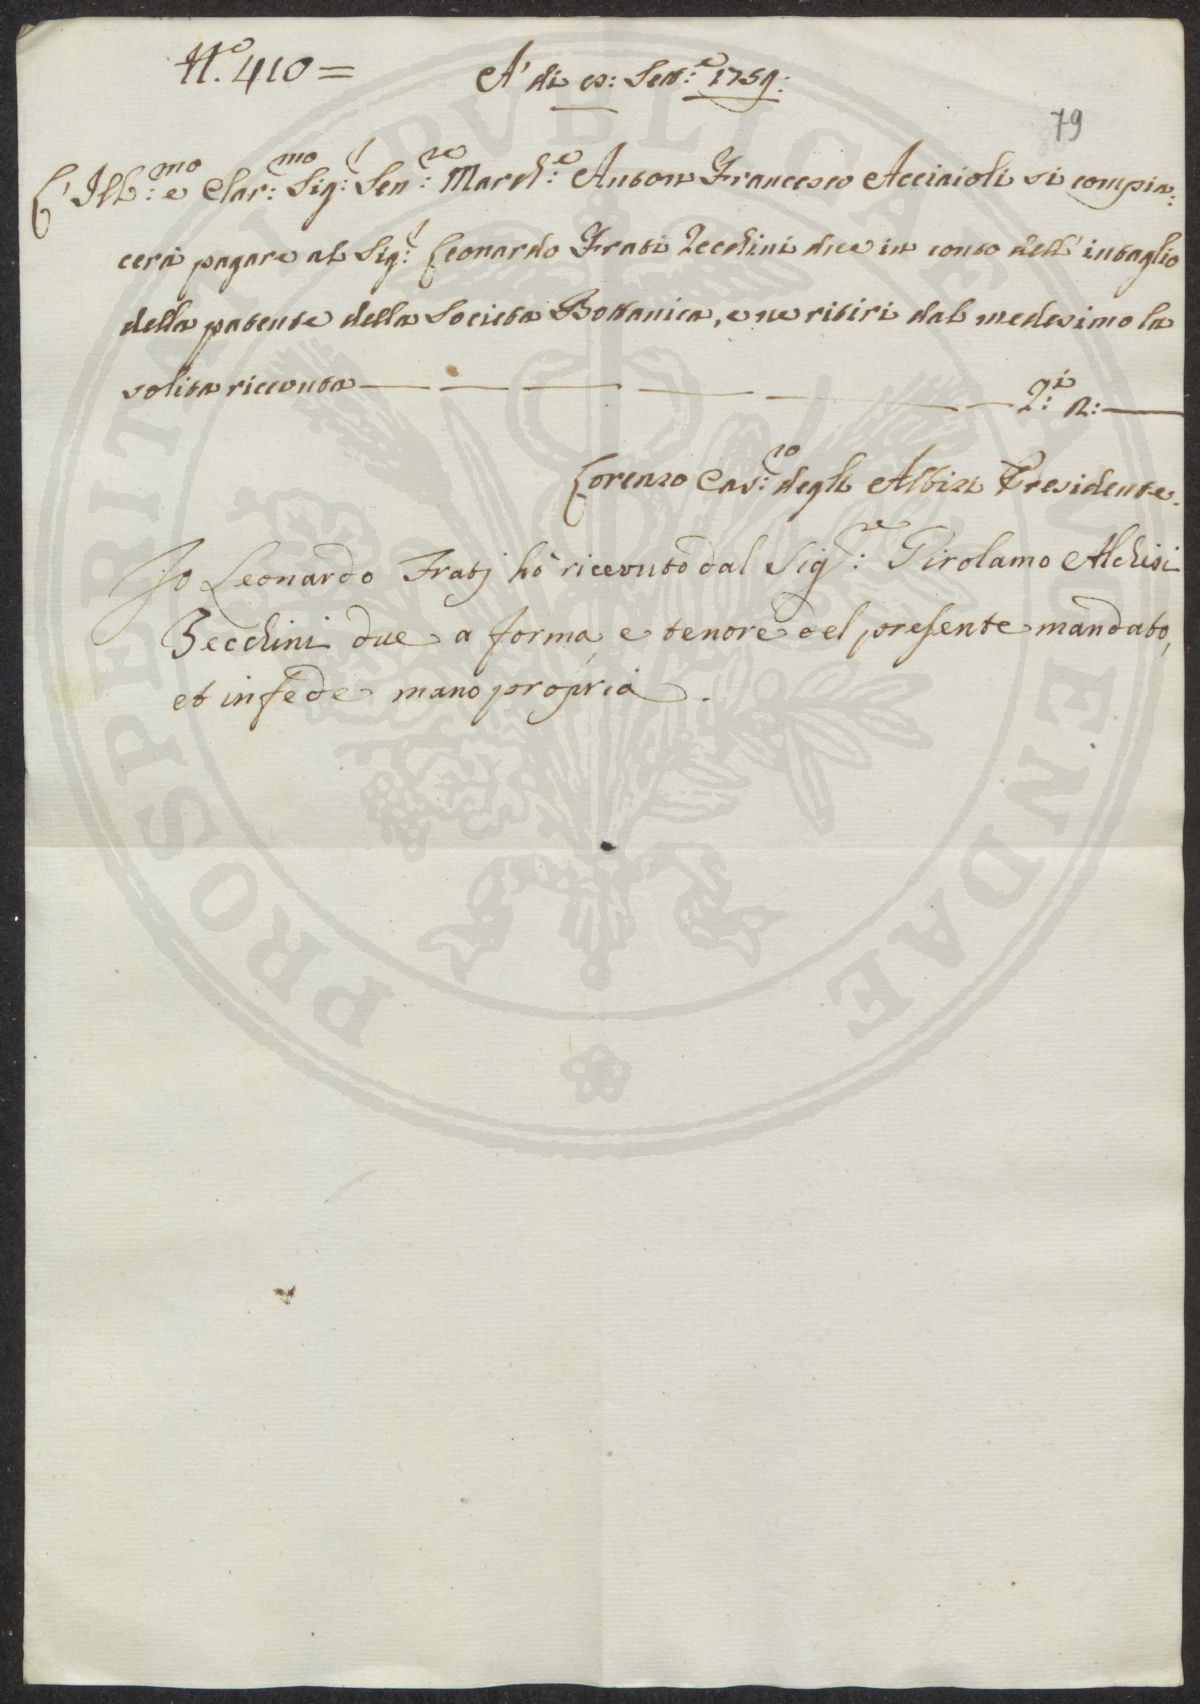 N.º 410 =
A' di : Sett:e 1759:
79
L' Ill:mo e Clar:mo Sig:r Sen:re March:e Anton Francesco Acciaioli si compia:
cerà pagare al Sig:r Leonardo Frati Zecchini due in conto dell' intaglio
della patente della Società Bottanica, e ne ritiri dal medesimo la
solita ricevuta — — — — — — Z:i 2: —
Lorenzo Cav:ro degli Albizi Presidente.
Io Leonardo Fratj hò ricevuto dal Sig:re Girolamo Alchisi
Zecchini due a forma, e tenore del presente mandato,
et in fede mano propria.
PROSPERITATI PVBLICAE AVGENDAE